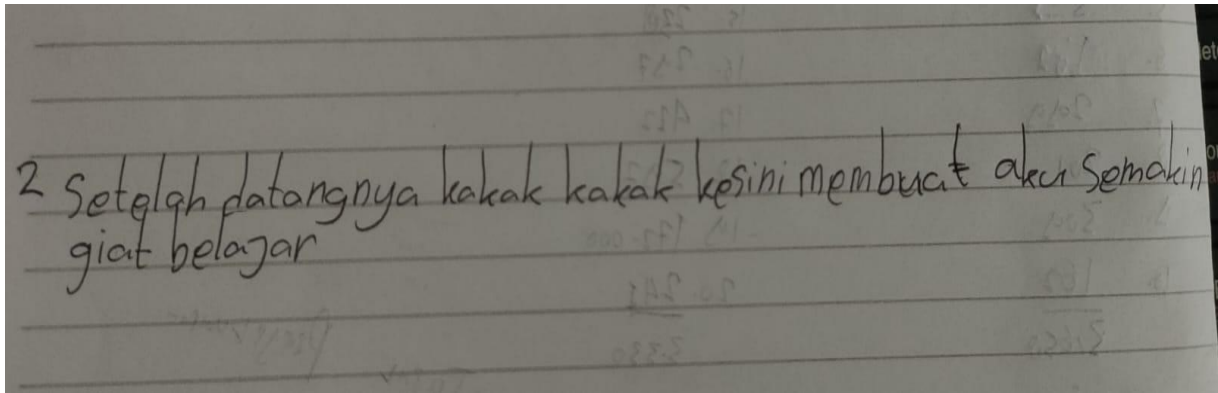 2 Setelah datangnya kakak kakak kesini membuat aku semakin
giat belajar